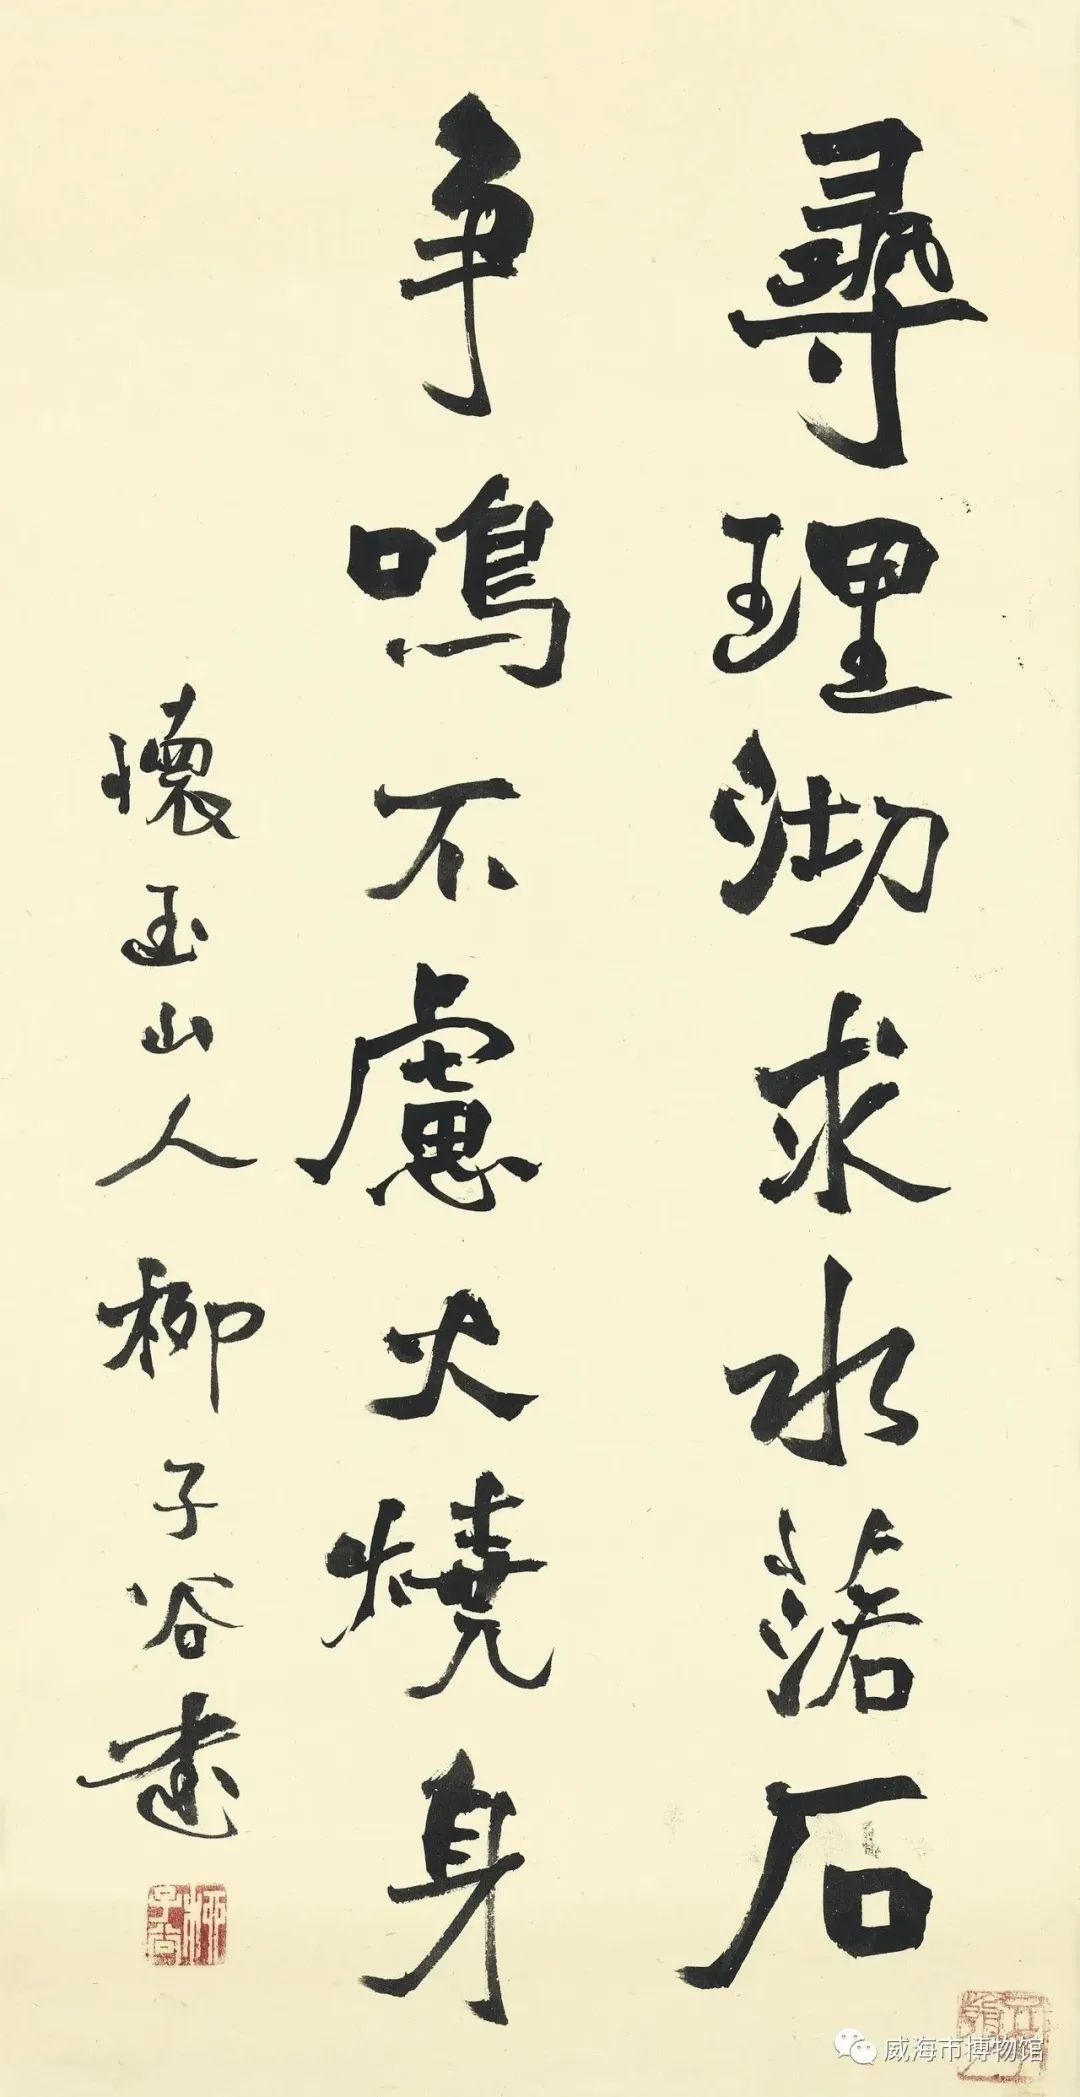 尋理沏求水落石
争鳴不慮火燒身
懷玉山人柳子谷
柳子谷
威海市博物馆